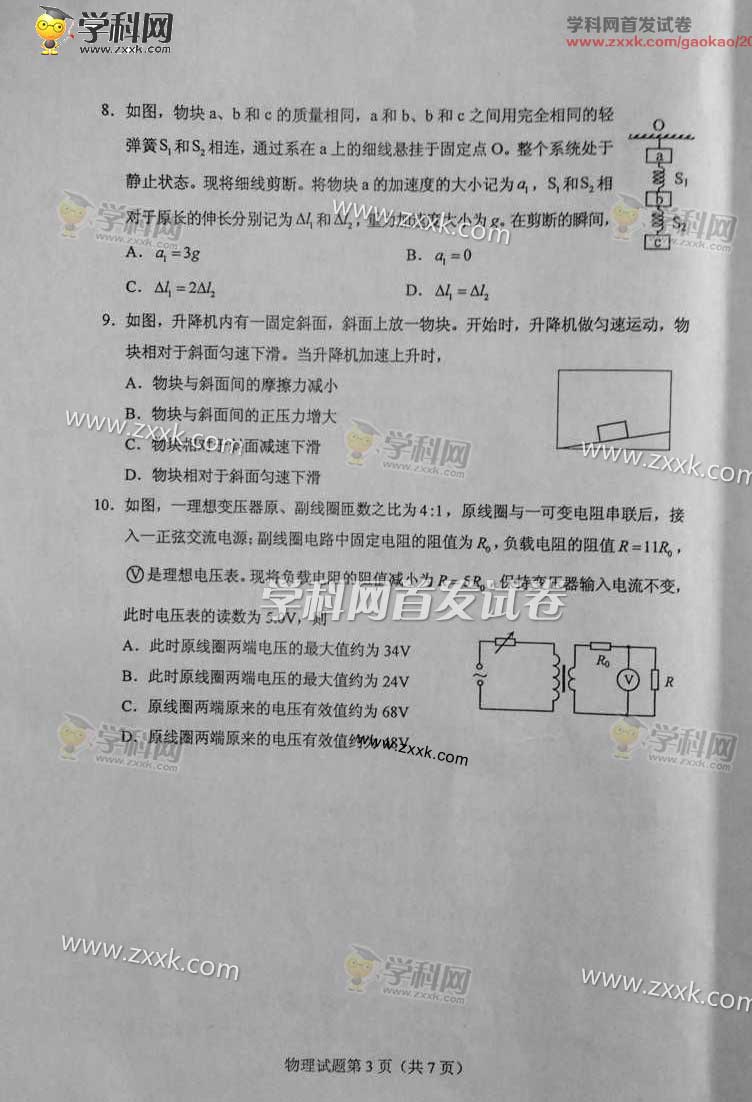 学科网
www.zxxk.com
学科网首发试卷
www.zxxk.com/gaokao/20
8. 如图，物块a、b和c的质量相同，a和b、b和c之间用完全相同的轻
弹簧S₁和S₂相连，通过系在a上的细线悬挂于固定点O。整个系统处于
静止状态。现将细线剪断。将物块a的加速度的大小记为a₁，S₁和S₂相
对于原长的伸长分别记为Δl₁和Δl₂，重力加速度大小为g。在剪断的瞬间，
A. a₁=3g
B. a₁=0
C. Δl₁=2Δl₂
D. Δl₁=Δl₂
O
a
S₁
b
S₂
c
www.zxxk.com
9. 如图，升降机内有一固定斜面，斜面上放一物块。开始时，升降机做匀速运动，物
块相对于斜面匀速下滑。当升降机加速上升时，
A. 物块与斜面间的摩擦力减小
B. 物块与斜面间的正压力增大
C. 物块相对于斜面减速下滑
D. 物块相对于斜面匀速下滑
www.zxxk.com
学科网
zxxk.com
www.zxxk.com
10. 如图，一理想变压器原、副线圈匝数之比为4:1，原线圈与一可变电阻串联后，接
入一正弦交流电源；副线圈电路中固定电阻的阻值为R₀，负载电阻的阻值R=11R₀，
Ⓥ是理想电压表。现将负载电阻的阻值减小为R=5R₀，保持变压器输入电流不变，
此时电压表的读数为5.0V，则
学科网首发试卷
A. 此时原线圈两端电压的最大值约为34V
B. 此时原线圈两端电压的最大值约为24V
C. 原线圈两端原来的电压有效值约为68V
D. 原线圈两端原来的电压有效值约为48V
R₀
V
R
学科网
zxxk.com
www.zxxk.com
学科网
zxxk.com
www.zxxk.com
学科网
zxxk.com
www.zxxk.com
物理试题第3页（共7页）